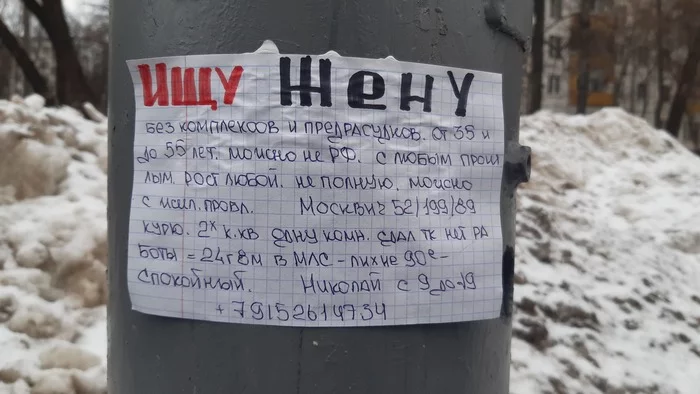 Ищу Жену
без комплексов и предрасудков. от 35 и
до 55 лет. можно не РФ. с любым прош
лым. рост любой. не полную. можно
с жил. пробл. Москвич 52/199/89
курю. 2х к.кв одну комн. сдал тк нет ра
боты = 24
спокойный. Николай с 9 до 19
+79152614734